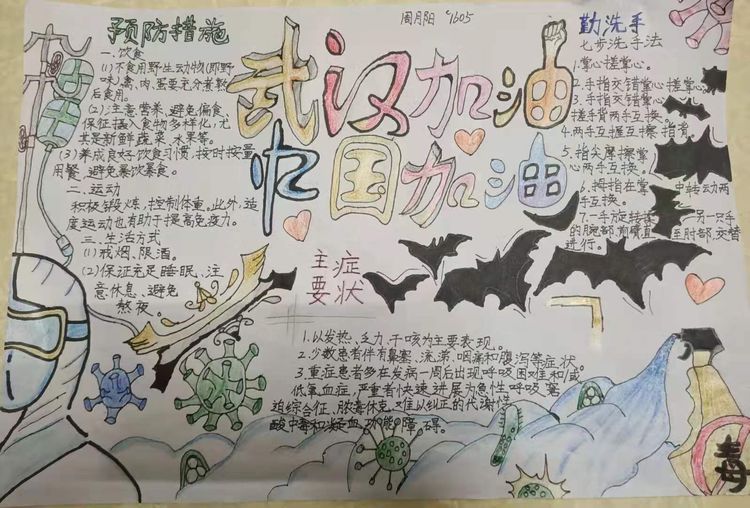 周月阳 1605
预防措施
一.饮食
(1)不食用野生动物(即野
味)禽、肉、蛋要充分煮熟
后食用。
(2)注意营养、避免偏食,
保征摄入食物多样化,尤
其是新鲜蔬菜、水果等。
(3)养成良好饮食习惯,按时按量
用餐,避免暴饮暴食。
二.运动
积极锻炼,控制体重。此外,适
度运动也有助于提高免疫力。
三.生活方式
(1)戒烟、限酒。
(2)保证充足睡眠、注
意休息、避免
熬夜。
武汉加油
中国加油
勤洗手
七步洗手法
1.掌心搓掌心。
2.手指交错掌心搓掌心。
3.手指交错掌心
搓手背两手互换。
4.两手互握互擦指背。
5.指尖摩擦掌
心两手互换。
6.拇指在掌中转动两
手互换。
7.一手旋转揉另一只手
的腕部、前臂直至肘部,交替
进行。
主要症状
1.以发热、乏力、干咳为主要表现。
2.少数患者伴有鼻塞、流涕、咽痛和腹泻等症状
3.重症患者多在发病一周后出现呼吸困难和/或
低氧血症,严重者快速进展为急性呼吸窘
迫综合征、脓毒休克、难以纠正的代谢性
酸中毒和凝血功能障碍。
毒